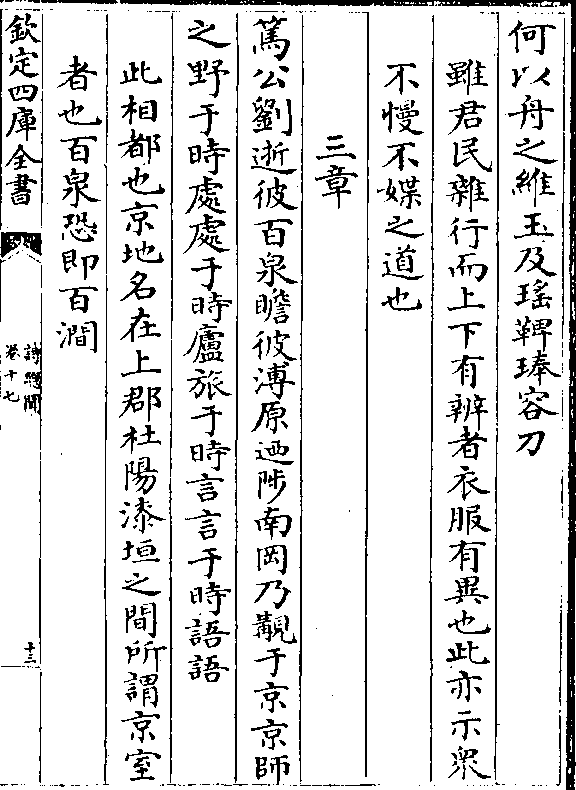 何以舟之維玉及瑤鞞琫容刀
雖君民雜行而上下有辨者衣服有異也此亦示衆
不慢不媟之道也
三章
篤公劉逝彼百泉瞻彼溥原迺陟南岡乃觀于京京師
之野于時處處于時廬旅于時言言于時語語
此相都也京地名在上郡杜陽漆垣之間所謂京室
者也百泉恐即百澗
欽定四庫全書
詩總聞
卷十七
十三